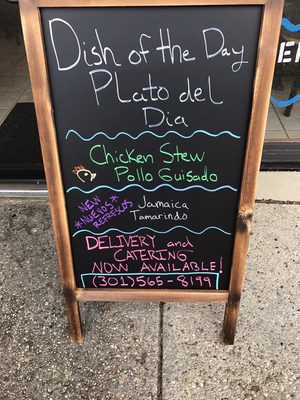 Dish of the Day
Plato del
Dia
Chicken Stew
Pollo Guisado
*NEW*
*NUEVOS*
REFRESCOS
Jamaica
Tamarindo
DELIVERY and
CATERING
NOW AVAILABLE!
(301)565-8199